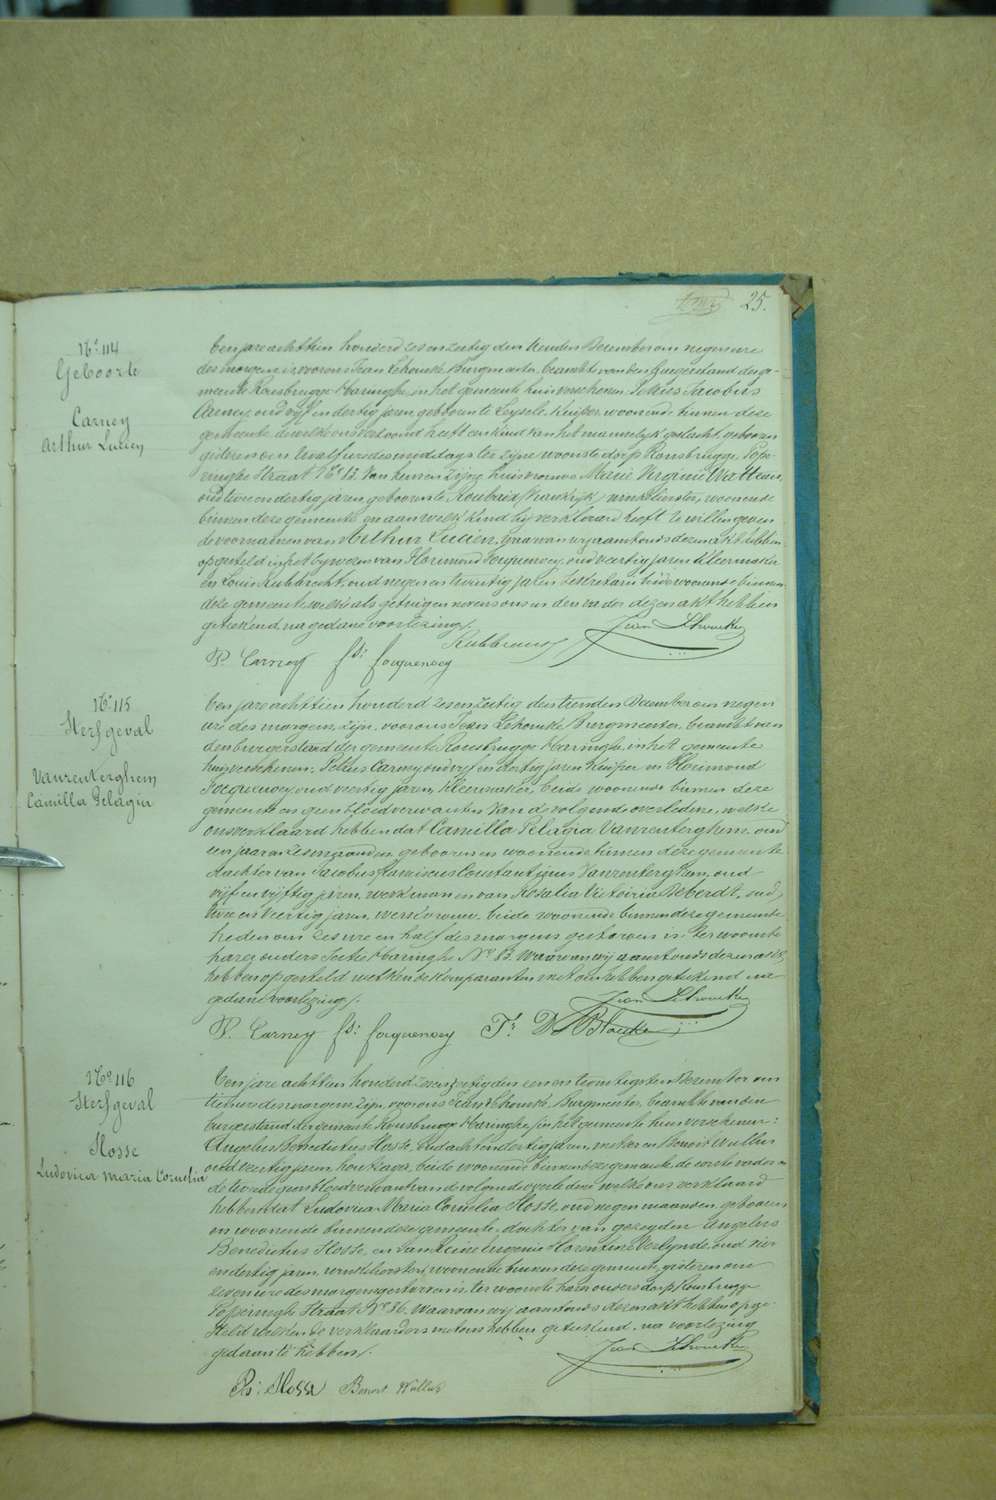 25.
N° 114
Geboorte
Carney
Arthur Lucien
Ten jare achttien honderd zes en zestig den tienden December om negen ure
des morgens is voor ons Jean Lehoucke, Burgmeester, beambte van den burgerstand der ge-
meente Rousbrugge-Haringhe, in het gemeente huis verschenen Petrus Jacobus
Carney, oud vijf en dertig jaren, gebooren te Leysele, kuiper, woonende binnen deze
gemeente, dewelke ons vertoond heeft een kind van het mannelyk geslacht, gebooren
gisteren om twaelf ure des middags ter zijne woonste dorp Rousbrugge, Pope-
ringhe Straat N° 13, van hem en zijne huisvrouwe Marie Virginie Watteau,
oud twee en dertig jaren, geboren te Roubaix Frankrijk, winkelierster, woonende
binnen deze gemeente en aan welk kind hij verklaard heeft te willen geven
de voornamen van Arthur Lucien, waarvan wij aanstonds dezen akt hebben
opgesteld in het bywezen van Florimond Focquenoey, oud veertig jaren, kleermaker
en Louis Rubbrecht, oud negen en twintig jaren, sekretaris, beide woonende binnen
deze gemeente, welke als getuigen nevens ons en den vader dezen akt hebben
geteekend na gedane voorlezing.
Jean Lehoucke
P. Carney fs: focquenoey
N° 115
Sterfgeval
Vanrenterghem
Camilla Pelagia
Ten jare achttien honderd zes en zestig den tienden December om negen
ure des morgens, zijn voor ons Jean Lehoucke, Burgmeester, beambte van
den burgerstand der gemeente Rousbrugge-Haringhe, in het gemeente
huis verschenen: Petrus Carney oud vijf en dertig jaren kuiper en Florimond
Focquenoey oud veertig jaren, kleermaker, beide woonende binnen deze
gemeente en geen bloedverwanten van de volgende overledene, welke
ons verklaard hebben dat Camilla Pelagia Vanrenterghem, oud
een jaar en zes maanden, gebooren en woonende binnen deze gemeente
dochter van Jacobus Franciscus Constantinus Vanrenterghem, oud
vijf en vijftig jaren, werkman en van Rosalia Victoria Deberdt, oud
twee en veertig jaren, werkvrouw, beide woonende binnen deze gemeente
heden om zes ure en half des morgens gestorven is ter woonste
harer ouders Sectie Haringhe N° 83. Waarvan wij aanstonds dezen akt
hebben opgesteld welken de komparanten met ons hebben geteekend na
gedane voorlezing.
Jean Lehoucke
P. Carney fs: focquenoey
N° 116
Sterfgeval
Hosse
Ludovica Maria Cornelia
Ten jare achttien honderd zes en zestig den een en twintigsten December om
tien ure des morgens, zijn voor ons Jean Lehoucke, Burgmeester, beambte van den
burgerstand der gemeente Rousbrugge-Haringhe, in het gemeente huis verschenen:
Angelus Benedictus Hosse, oud acht en dertig jaren, metser en Benoit Wullus
oud veertig jaren, houtzager, beide woonende binnen deze gemeente, de eerste vader en
de tweede geen bloedverwant van de volgende overledene welke ons verklaard
hebben dat Ludovica Maria Cornelia Hosse, oud negen maanden, gebooren
en woonende binnen deze gemeente, dochter van gezeyden Angelus
Benedictus Hosse, en van Reine Eugenie Florentine Verlynde, oud vier
en dertig jaren, winkelierster, woonende binnen deze gemeente, gisteren om
zeven ure des morgens gestorven is, ter woonste harer ouders dorp Rousbrugge
Poperinghe Straat N° 86. Waarvan wij aanstonds dezen akt hebben opge-
steld welken de verklaarders met ons hebben geteekend, na voorlezing
gedaan te hebben.
Jean Lehoucke
Bs: Hosse Benoit Wullus